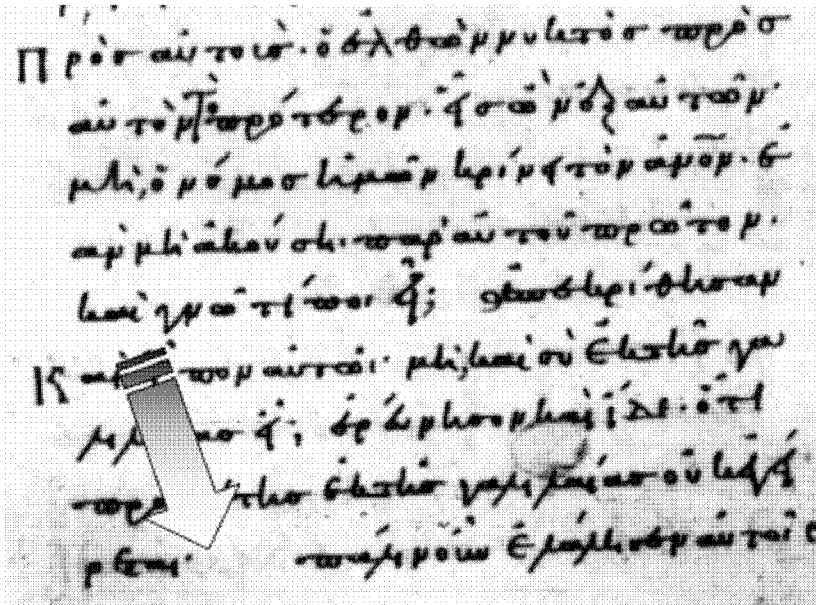 Πρὸς αὐτούς· ὁ ἐλθὼν νυκτὸς πρὸς
αὐτὸν τὸ πρότερον· εἷς ὢν ἐξ αὐτῶν·
μὴ ὁ νόμος ἡμῶν κρίνει τὸν ἄνον· ἐ
ὰν μὴ ἀκούση· παρ' αὐτοῦ πρῶτον·
καὶ γνῶ τί ποιεῖ; ἀπεκρίθησαν
Κα πον αὐτῶ· μὴ καὶ σὺ ἐκ τῆς γα
λι ας εἶ; ἐρεύνησον καὶ ἴδε· ὅτι
προ της ἐκ τῆς γαλιλαίας οὐκ ἐγεί
ρεται· πάλιν οὖν ἐλάλησεν αὐτοῖς